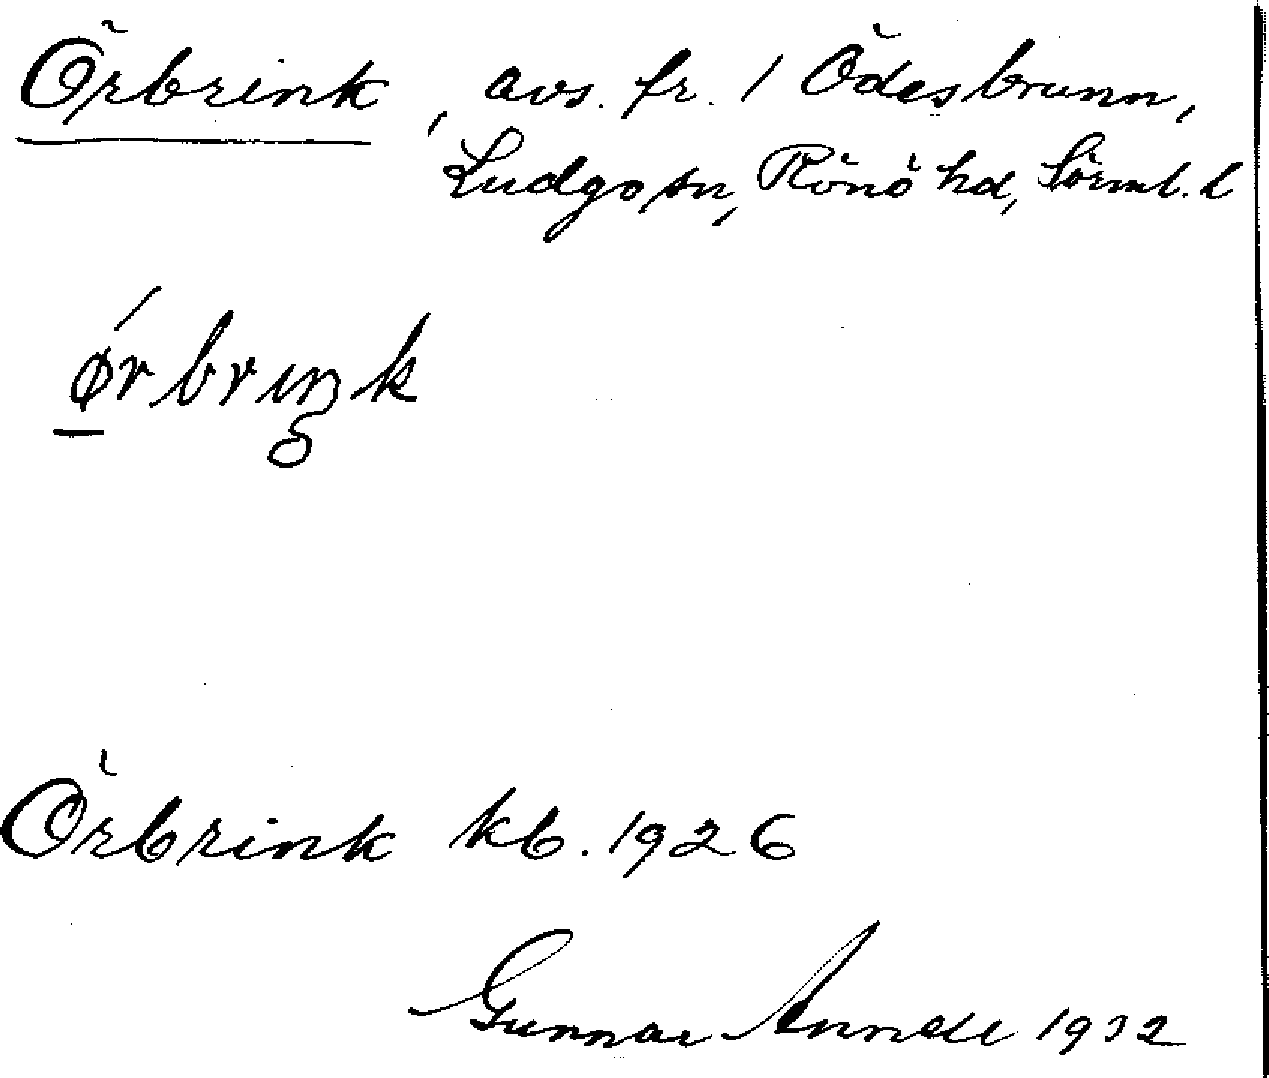 Örbrink, avs. fr. 1 Ödesbrunn,
Ludgo sn, Rönö hd, Sörml. l
ǿrbrıŋk
Örbrink kb. 1926
Gunnar 1932